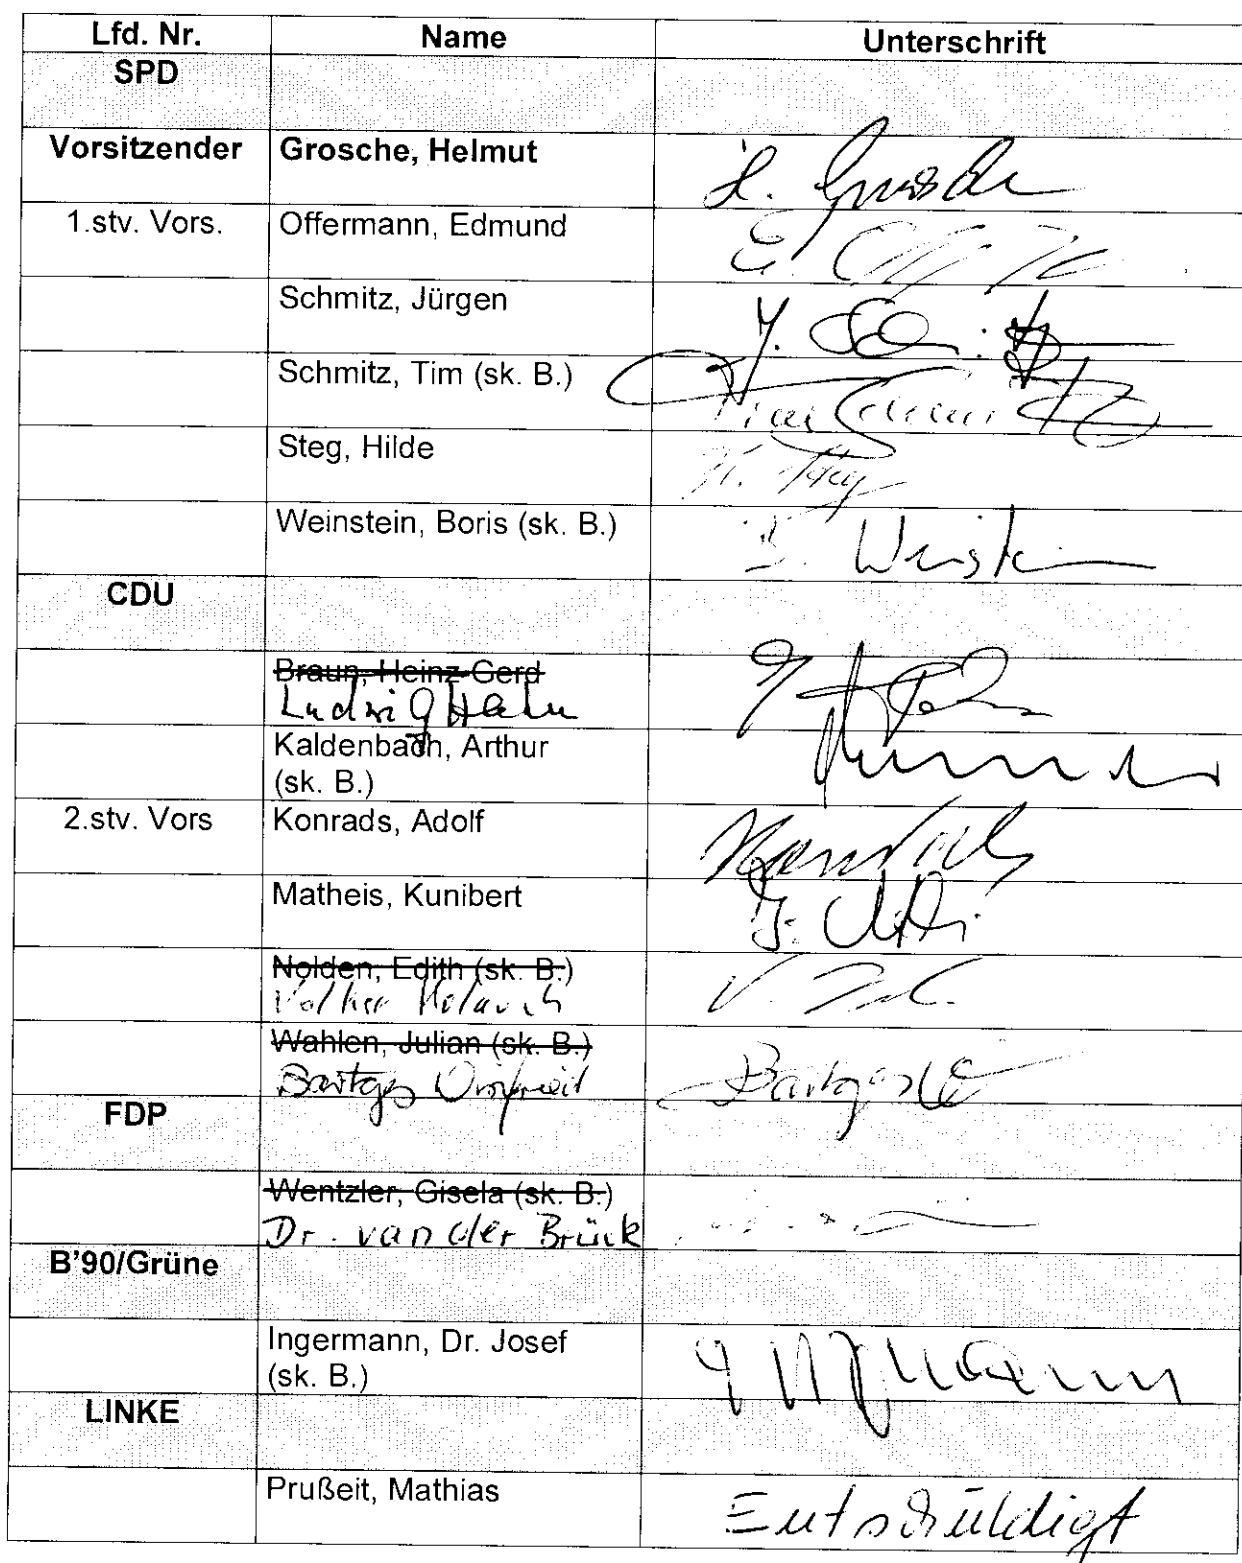 Lfd. Nr. Name Unterschrift
SPD
Vorsitzender Grosche, Helmut H. Grosche
1.stv. Vors. Offermann, Edmund E.
Schmitz, Jürgen J. Schmitz
Schmitz, Tim (sk. B.) Tim Schmitz
Steg, Hilde H. Steg
Weinstein, Boris (sk. B.) B. Weinstein
CDU
Braun, Heinz-Gerd
Ludwig Hahn
Kaldenbach, Arthur
(sk. B.)
2.stv. Vors Konrads, Adolf Konrads
Matheis, Kunibert
Nolden, Edith (sk. B.)
Volker V.
Wahlen, Julian (sk. B.)
Bartges Winfried Bartges
FDP
Wentzler, Gisela (sk. B.)
Dr. van der Brück
B'90/Grüne
Ingermann, Dr. Josef
(sk. B.)
LINKE
Prußeit, Mathias Entschuldigt